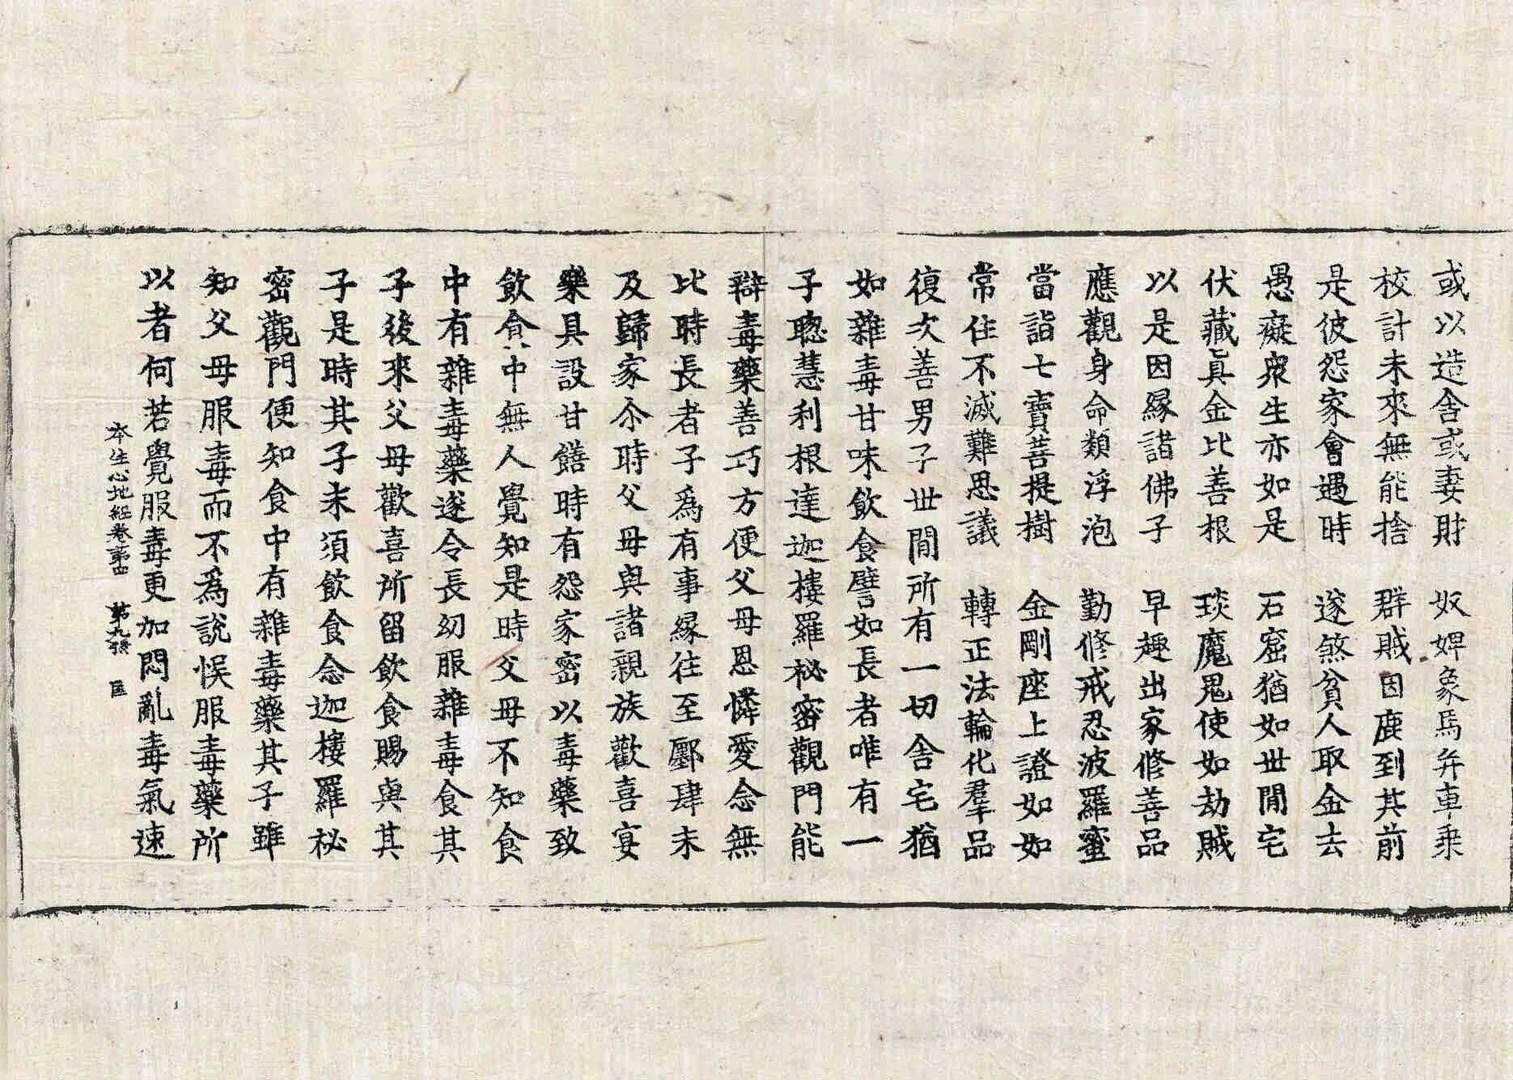 或以造舍或妻財　奴婢象馬并車乗
校計未來無能捨　群賊因鹿到其前
是彼怨家會遇時　遂煞貧人取金去
愚癡衆生亦如是　石窟猶如世間宅
伏藏眞金比善根　琰魔鬼使如劫賊
以是因縁諸佛子　早趣出家修善品
應觀身命類浮泡　勤修戒忍波羅蜜
當詣七寶菩提樹　金剛座上證如如
常住不滅難思議　轉正法輪化羣品
復次善男子世間所有一切舍宅猶
如雜毒甘味飲食譬如長者唯有一
子聦慧利根達迦樓羅秘密觀門能
辯毒藥善巧方便父母恩憐愛念無
比時長者子爲有事縁往至鄽肆未
及歸家尒時父母與諸親族歡喜宴
樂具設甘饍時有怨家密以毒藥致
飲食中無人覺知是時父母不知食
中有雜毒藥遂令長幼服雜毒食其
子後來父母歡喜所留飲食賜與其
子是時其子未須飲食念迦樓羅秘
密觀門便知食中有雜毒藥其子雖
知父母服毒而不爲說悮服毒藥所
以者何若覺服毒更加悶亂毒氣速
本生心地經卷第四　第九張　匡